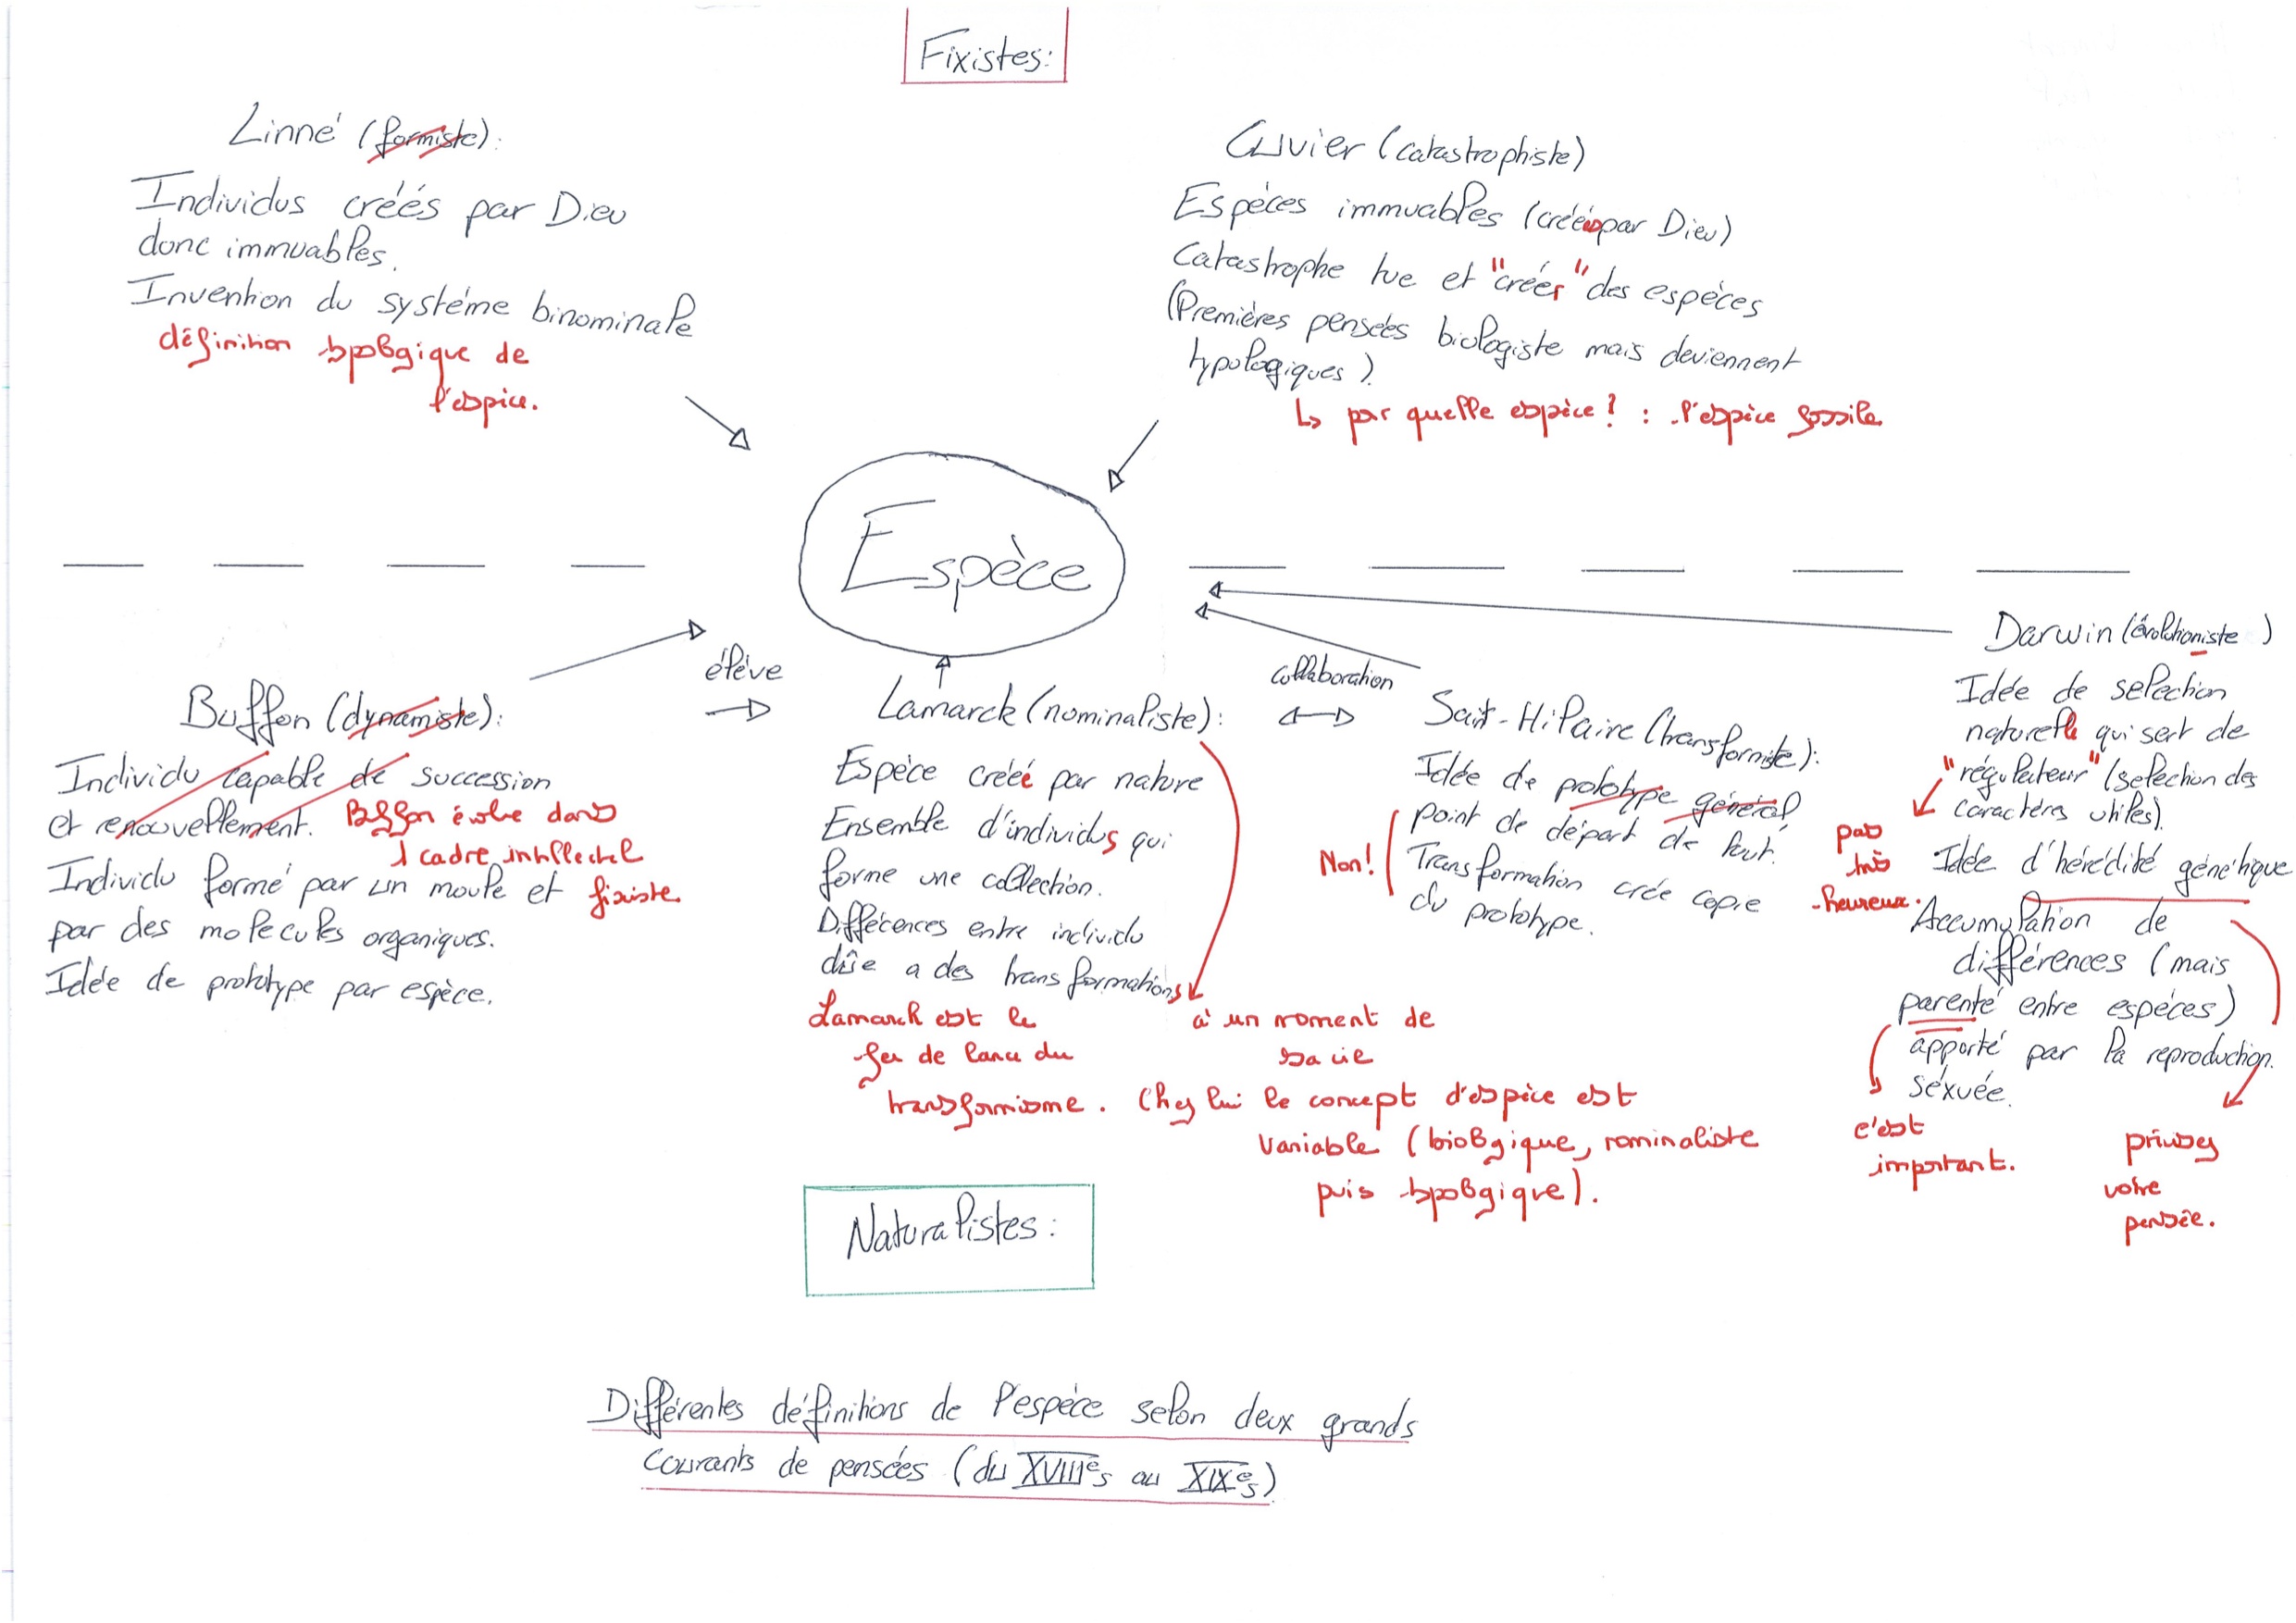 Fixistes:
Linné (formiste):
Individus créés par Dieu
donc immuables.
Invention du système binominale
définition typologique de
l'espèce.
Cuvier (catastrophiste)
Espèces immuables (créées par Dieu)
Catastrophe tue et "créer" des espèces
(Premières pensées biologiste mais deviennent
typologiques).
↳ par quelle espèce? : l'espèce fossile
Espèce
Buffon (dynamiste):
Individu capable de succession
et renouvellement. Buffon évolue dans
1 cadre intellectuel
Individu formé par un moule et fixiste
par des molécules organiques.
Idée de prototype par espèce.
élève
Lamarck (nominaliste):
Espèce créée par nature
Ensemble d'individus qui
forme une collection.
Différences entre individu
dûe a des transformations
Lamarck est le
fer de lance du
transformisme. Chez lui le concept d'espèce est
variable (biologique, nominaliste
puis typologique).
à un moment de
sa vie
collaboration
Saint-Hilaire (transformiste):
Idée de prototype général
point de départ de tout.
Transformation crée copie
du prototype.
Non!
Darwin (évolutionniste)
Idée de selection
naturelle qui sert de
"régulateur" (selection des
caractères utiles).
pas
très
-heureux.
Idée d'hérédité génétique
Accumulation de
différences (mais
parenté entre espèces)
apporté par la reproduction
séxuée.
c'est
important.
précisez
votre
pensée.
Naturalistes:
Différentes définitions de l'espèce selon deux grands
courants de pensées (du XVIIIe s au XIXe s)